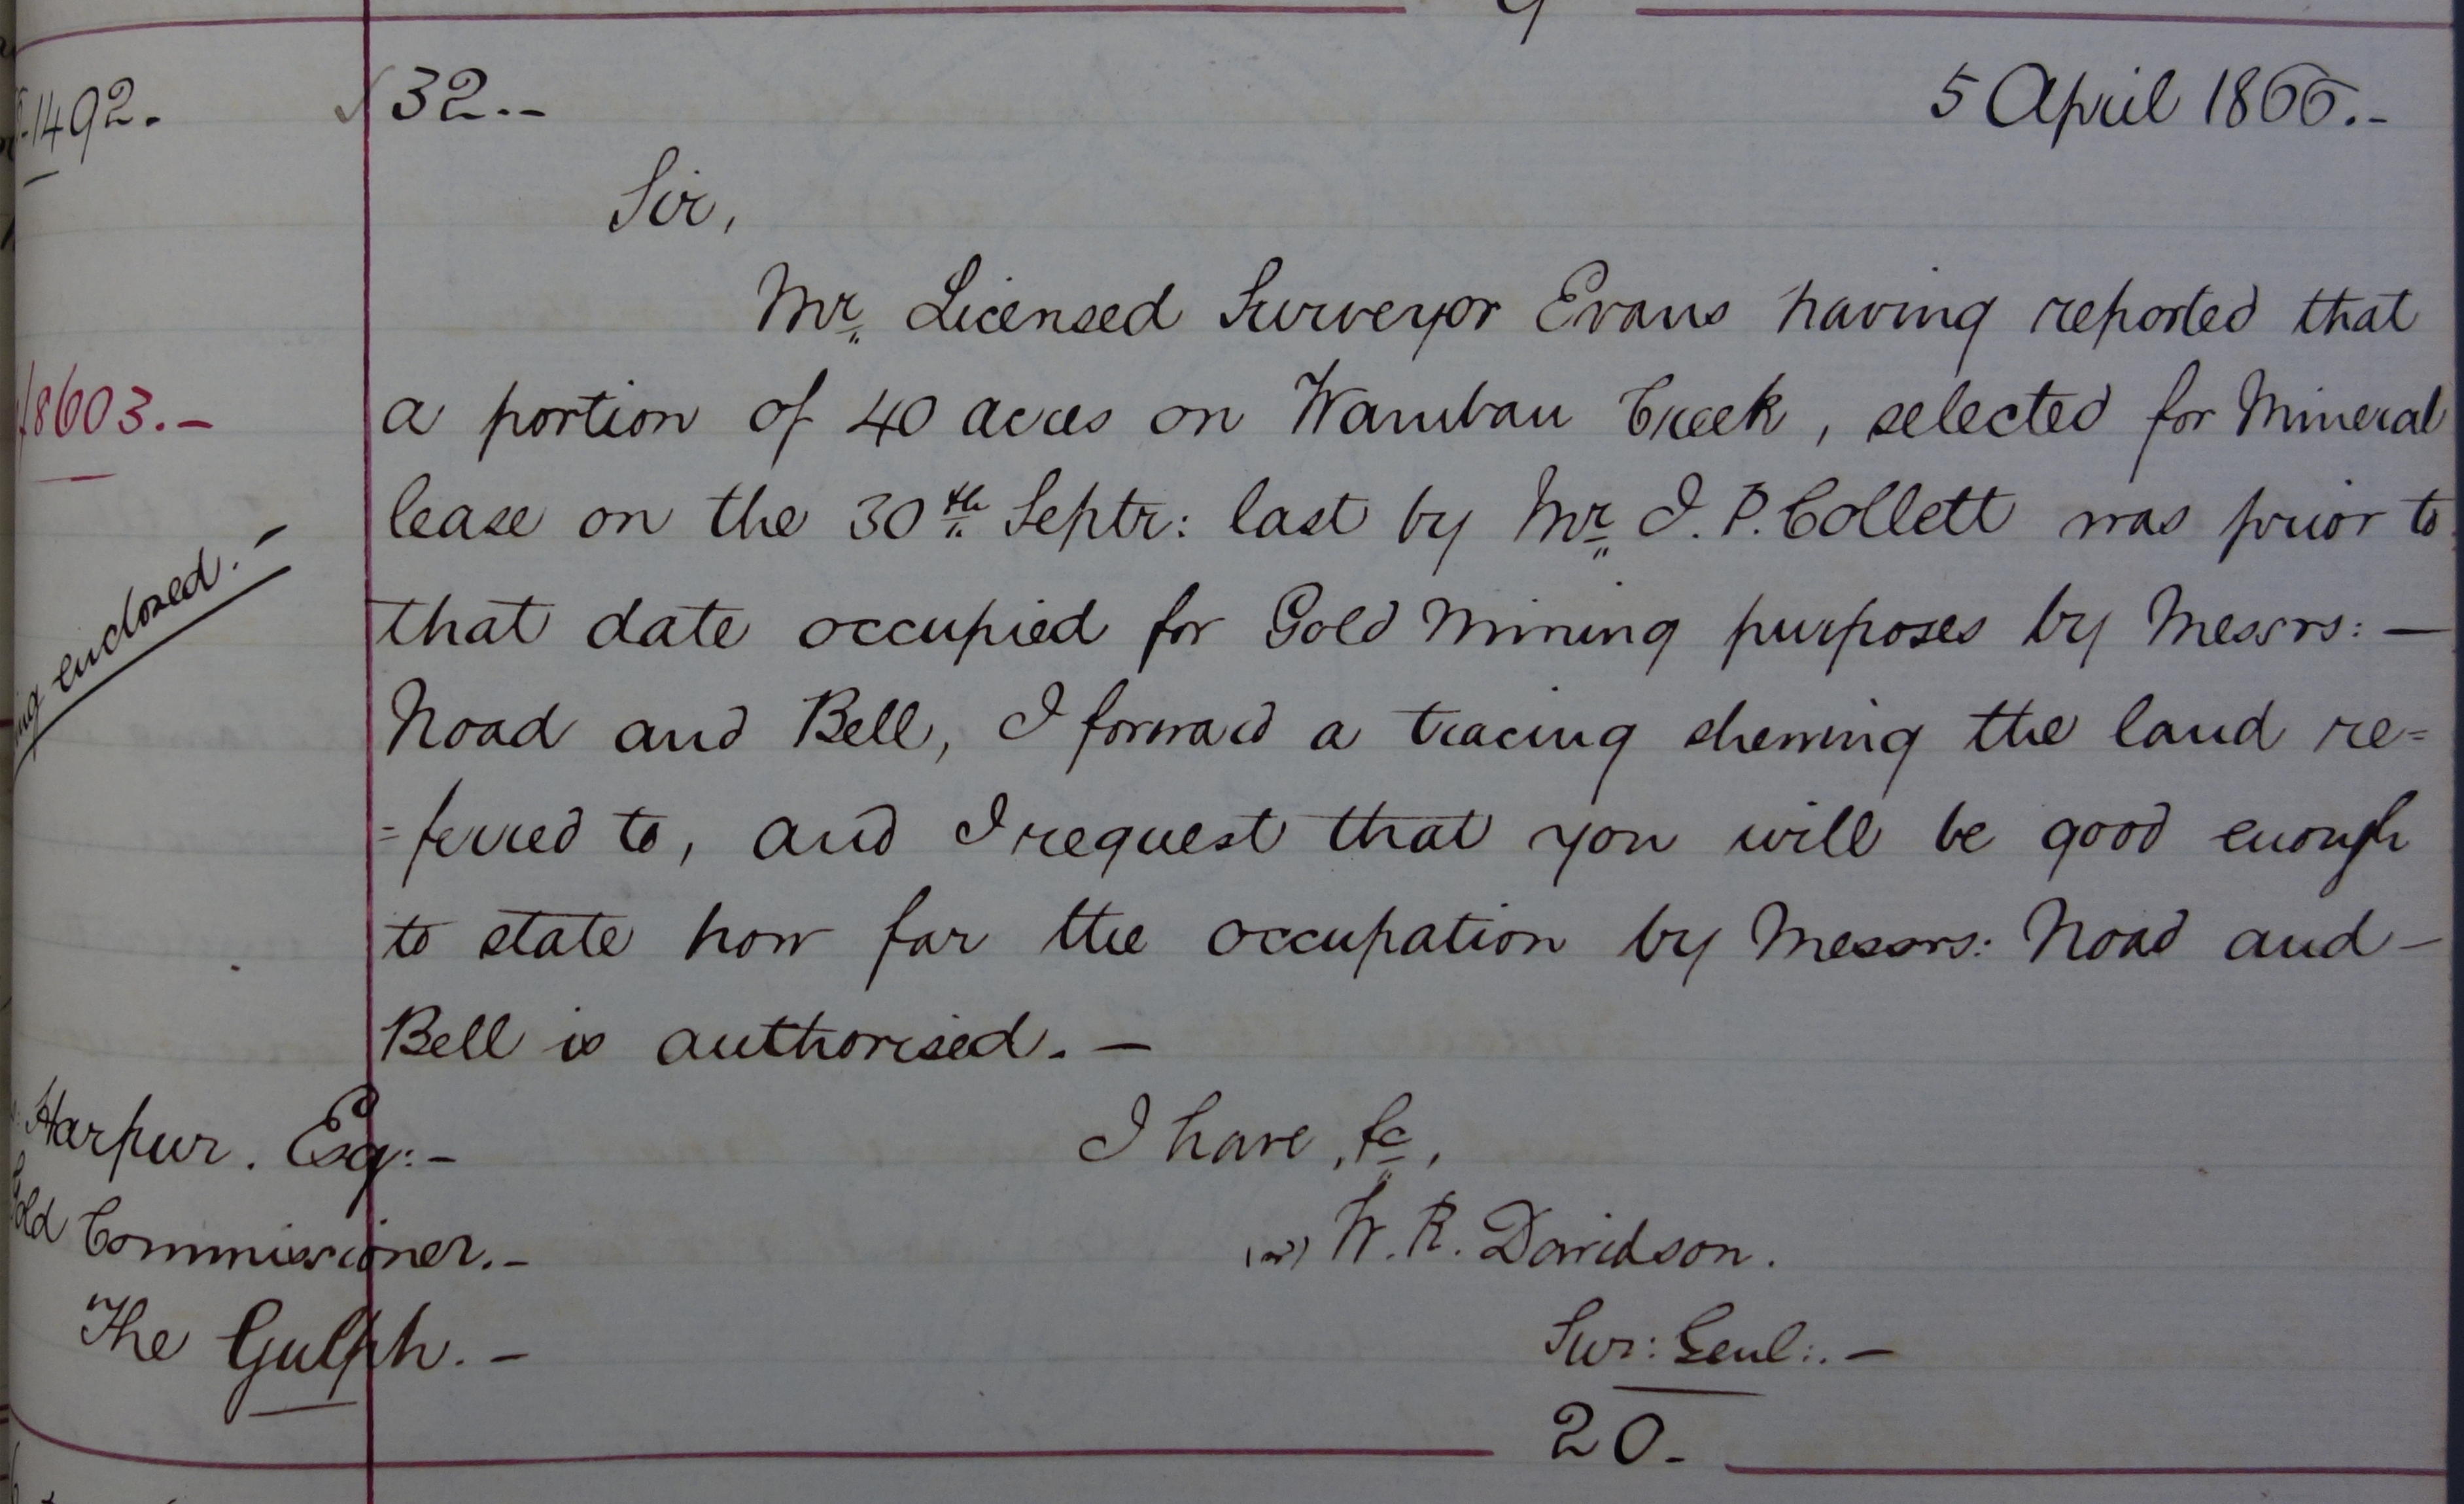 1492.
32.-
5 April 1866.-
Sir,
Mr. Licensed Surveyor Evans having reported that
8603.-
a portion of 40 acres on Wambau Creek, selected for Mineral
lease on the 30th Septr: last by Mr. J. P. Collett was prior to
that date occupied for Gold Mining purposes by Messrs: —
enclosed.-
Noad and Bell, I forward a tracing shewing the land re=
=ferred to, and I request that you will be good enough
to state how far the occupation by Messrs: Noad and —
Bell is authorised. —
I have, &c,
W. R. Davidson.
Sur: Genl:. —
Harpur. Esq:-
Commissioner.-
The Gulph. —
20.-